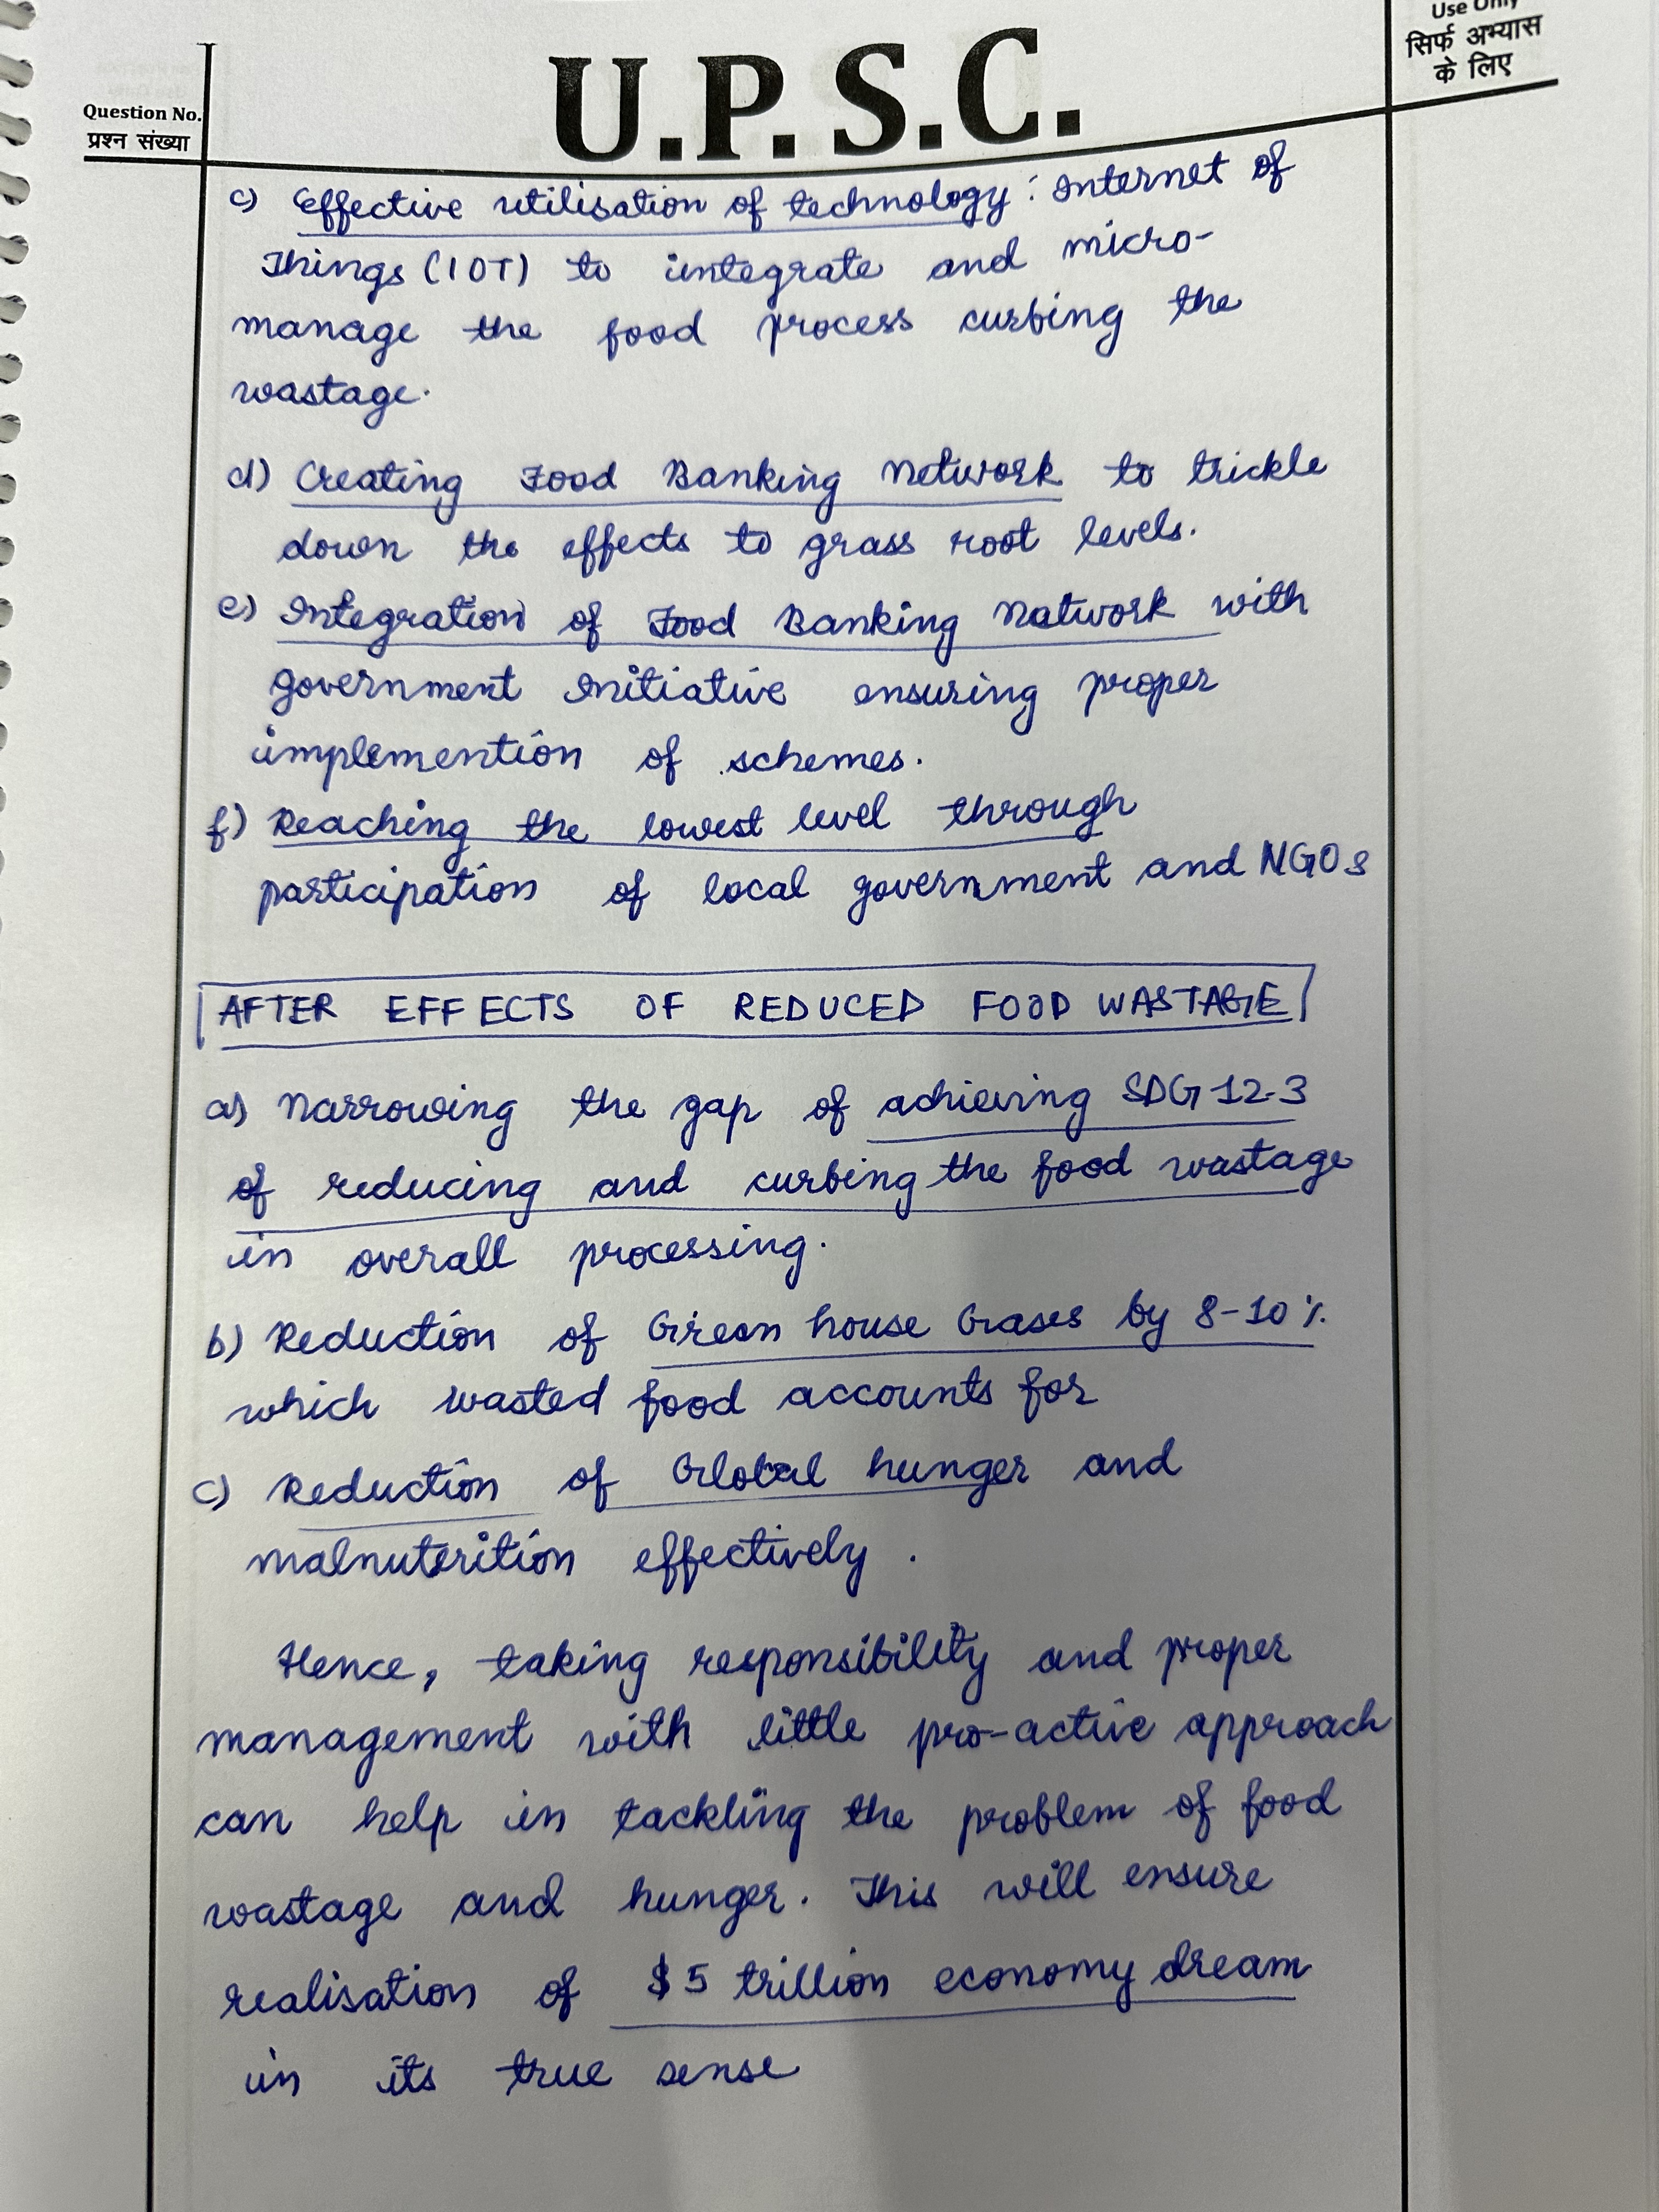 Use Only
सिर्फ अभ्यास
के लिए
U.P.S.C.
Question No.
प्रश्न संख्या
c) Effective utilisation of technology: Internet of
Things (IOT) to integrate and micro-
manage the food process curbing the
wastage.
d) Creating Food Banking Network to trickle
down the effects to grass root levels.
e) Integration of Food Banking Network with
government Initiative ensuring proper
implemention of schemes.
f) Reaching the lowest level through
participation of local government and NGOs
AFTER EFFECTS OF REDUCED FOOD WASTAGE
a) Narrowing the gap of achieving SDG 12.3
of reducing and curbing the food wastage
in overall processing.
b) Reduction of Green house Gases by 8-10%
which wasted food accounts for
c) Reduction of Global hunger and
malnuterition effectively.
Hence, taking responsibility and proper
management with little pro-active approach
can help in tackling the problem of food
wastage and hunger. This will ensure
realisation of $5 trillion economy dream
in its true sense